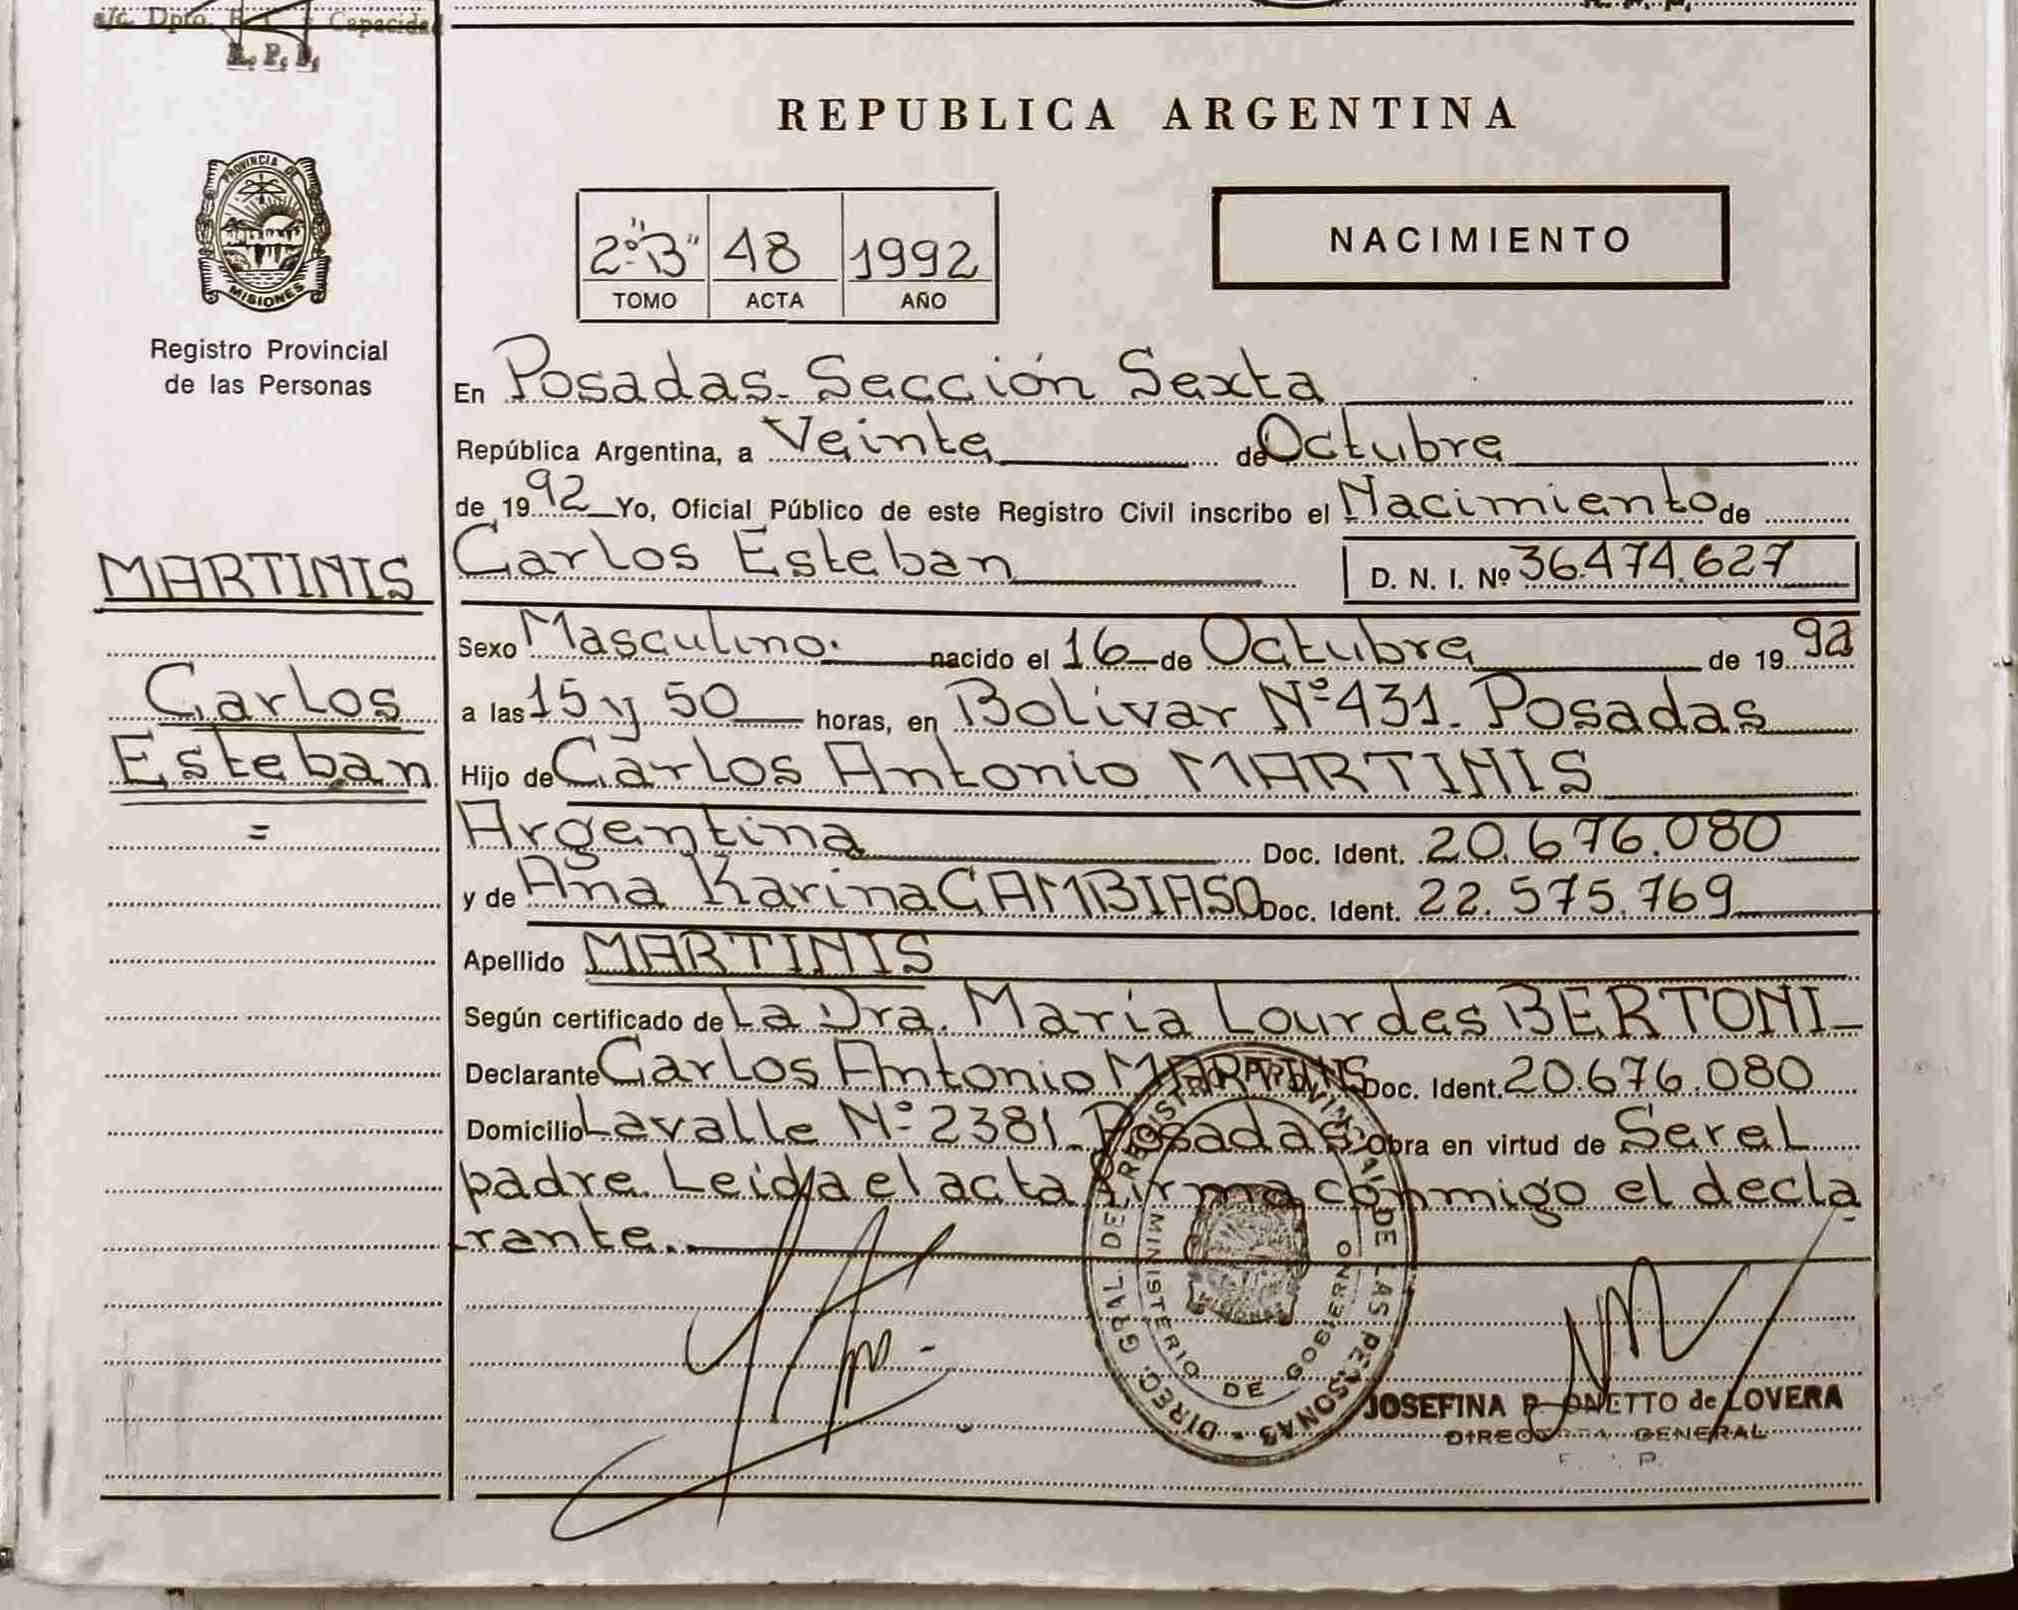 a/c. Dpto. E. C. y Capacidad
R. P. P.
R. P. P.
PROVINCIA DE
MISIONES
Registro Provincial
de las Personas
MARTINIS
Carlos
Esteban
=
REPUBLICA ARGENTINA
2º"B" 48 1992
TOMO ACTA AÑO
NACIMIENTO
En Posadas. Sección Sexta
República Argentina, a Veinte de Octubre
de 1992 Yo, Oficial Público de este Registro Civil inscribo el Nacimiento de
Carlos Esteban D. N. I. Nº 36.474.627
Sexo Masculino. nacido el 16 de Octubre de 1992
a las 15 y 50 horas, en Bolivar Nº 431. Posadas
Hijo de Carlos Antonio MARTINIS
Argentina Doc. Ident. 20.676.080
y de Ana Karina CAMBIASO Doc. Ident. 22.575.769
Apellido MARTINIS
Según certificado de La Dra. María Lourdes BERTONI
Declarante Carlos Antonio MARTINIS Doc. Ident. 20.676.080
Domicilio Lavalle Nº 2381. Posadas Obra en virtud de Ser el
padre. Leída el acta firma conmigo el decla
rante.
DIREC. GRAL DEL REGISTRO PROVINCIAL DE LAS PERSONAS
MINISTERIO DE GOBIERNO
MISIONES
JOSEFINA ONETTO de LOVERA
DIRECTORA GENERAL